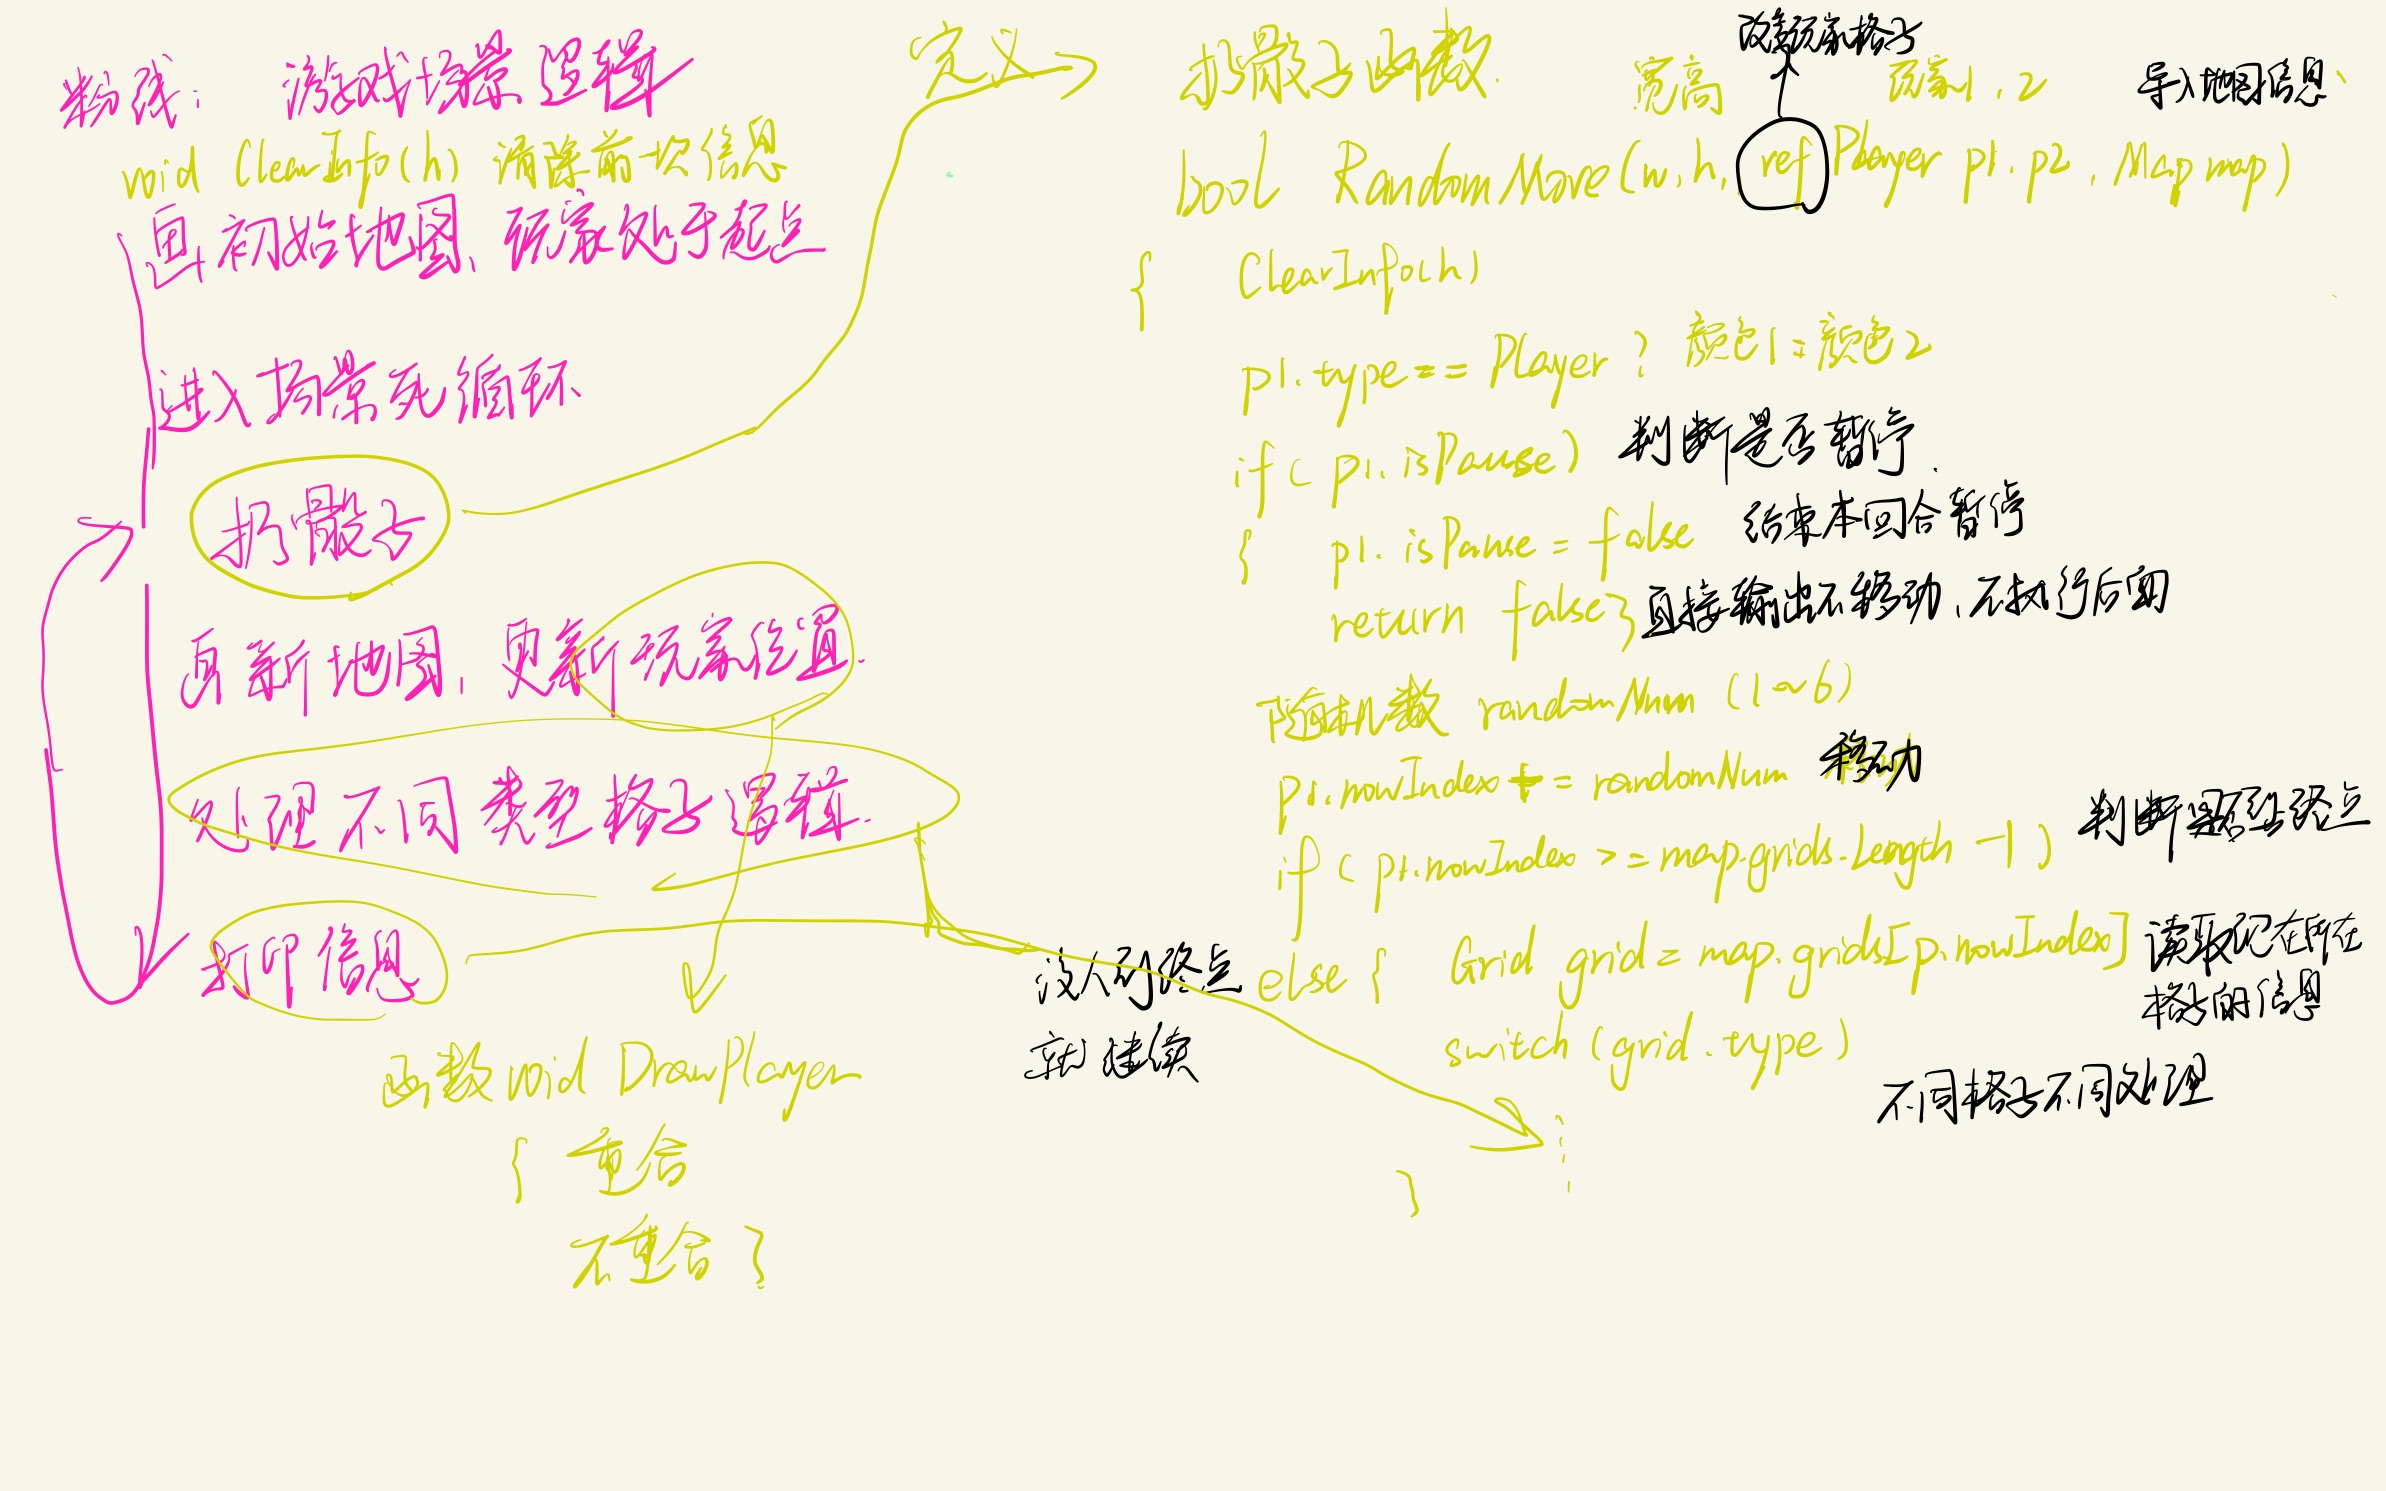 粉线: 游戏场景逻辑
void ClearInfo(h) 清除前一次信息
画初始地图、玩家处于起点
进入场景死循环
扔骰子
画新地图, 更新玩家位置.
处理不同类型格子逻辑.
打印信息
函数void DrawPlayer
{ 重合
不重合 }
定义
扔骰子函数.
改变玩家格子
宽高
玩家1,2
导入地图信息
bool RandomMove(w,h, ref Player p1.p2, Map map)
{ ClearInfo(h)
p1.type == Player ? 颜色1:颜色2
if ( p1.isPause) 判断是否暂停.
{ p1.isPause = false 结束本回合暂停
return false} 直接输出不移动, 不执行后面
随机数 randomNum (1~6)
p1.nowIndex += randomNum 移动
if ( p1.nowIndex >= map.grids.Length -1 ) 判断是否到终点
没人到终点
就继续
else { Grid grid = map.grids[p.nowIndex] 读取现在所在
格子的信息
switch (grid.type)
不同格子不同处理
}